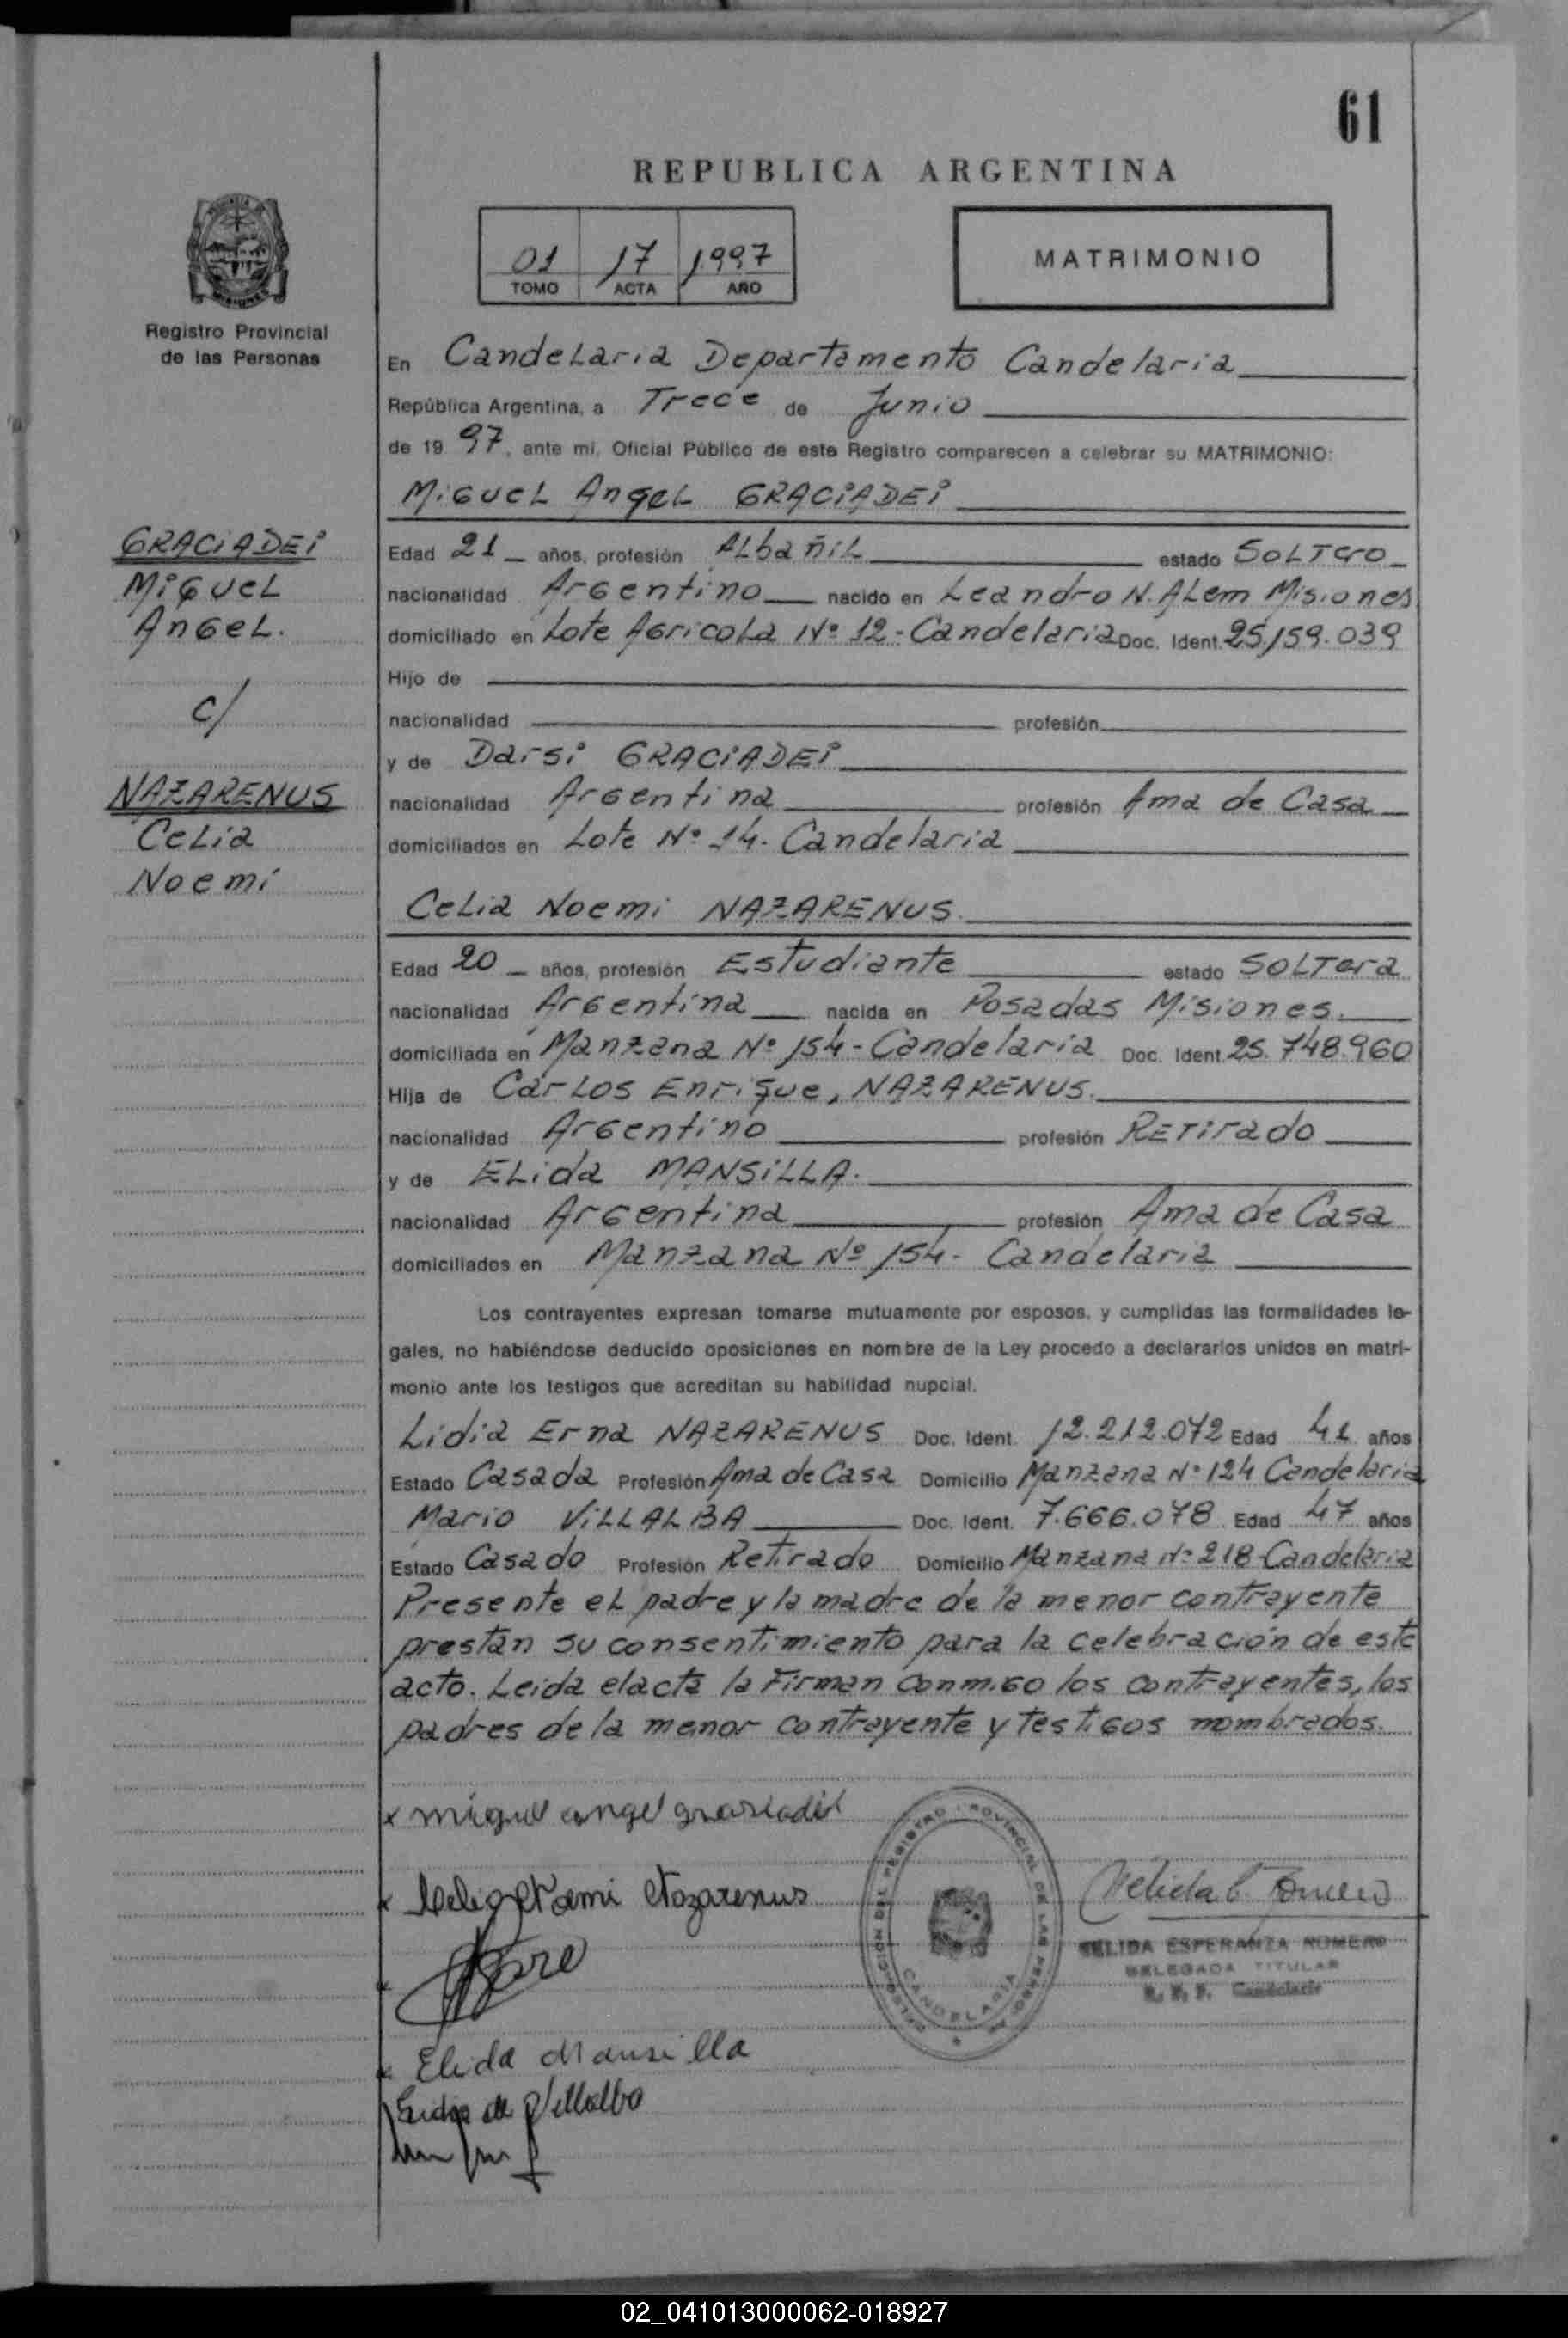 61
REPUBLICA ARGENTINA
01 17 1997
TOMO ACTA AÑO
MATRIMONIO
PROVINCIA DE
MISIONES
Registro Provincial
de las Personas
En Candelaria Departamento Candelaria
República Argentina, a Trece de Junio
de 19 97, ante mi, Oficial Público de este Registro comparecen a celebrar su MATRIMONIO:
Miguel Angel GRACIADEI
GRACIADEI
Miguel
Angel.
c/
NAZARENUS
Celia
Noemi
Edad 21 años, profesión Albañil estado Soltero
nacionalidad Argentino nacido en Leandro N. Alem Misiones
domiciliado en Lote Agricola Nº 12 - Candelaria Doc. Ident. 25.159.039
Hijo de
nacionalidad profesión
y de Darsi GRACIADEI
nacionalidad Argentina profesión Ama de Casa
domiciliados en Lote Nº 14. Candelaria
Celia Noemi NAZARENUS.
Edad 20 años, profesión Estudiante estado Soltera
nacionalidad Argentina nacida en Posadas Misiones.
domiciliada en Manzana Nº 154 - Candelaria Doc. Ident. 25.748.960
Hija de Carlos Enrique, NAZARENUS.
nacionalidad Argentino profesión Retirado
y de Elida MANSILLA.
nacionalidad Argentina profesión Ama de Casa
domiciliados en Manzana Nº 154. Candelaria
Los contrayentes expresan tomarse mutuamente por esposos, y cumplidas las formalidades le-
gales, no habiéndose deducido oposiciones en nombre de la Ley procedo a declararlos unidos en matri-
monio ante los testigos que acreditan su habilidad nupcial.
Lidia Erna NAZARENUS Doc. Ident. 12.212.072 Edad 41 años
Estado Casada Profesión Ama de Casa Domicilio Manzana Nº 124 Candelaria
Mario VILLALBA Doc. Ident. 7.666.078 Edad 47 años
Estado Casado Profesión Retirado Domicilio Manzana Nº 218 - Candelaria
Presente el padre y la madre de la menor contrayente
prestan su consentimiento para la celebración de este
acto. Leida el acta la Firman conmigo los contrayentes, los
padres de la menor contrayente y testigos nombrados.
x miguel angel graciadei
x Celia Noemi Nazarenus
DELEGACION DEL REGISTRO PROVINCIAL DE LAS PERSONAS
CANDELARIA
Nelida E. Romero
NELIDA ESPERANZA ROMERO
DELEGADA TITULAR
R. P. P. Candelaria
x Elida Mansilla
Lidia de Villalba
02_041013000062-018927